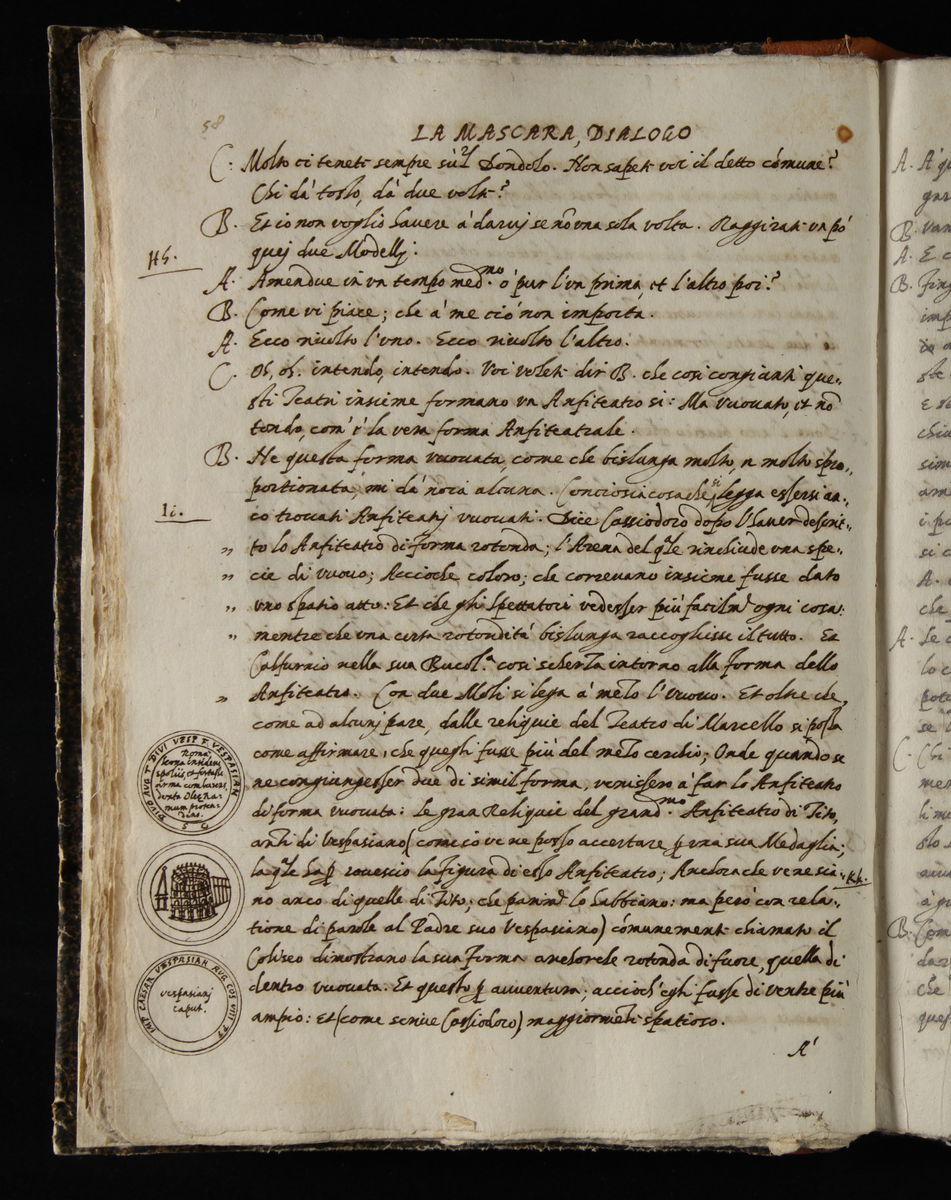 58
LA MASCARA, DIALOGO
C. Molto ci tenete sempre sù'l Dondolo. Non sapete voi il detto cómune?
Chi dà tosto, dà due volte?
B. Et io non voglio havere à darvj se nõ una sola volta. Raggirate un pò
Hh.
quej due Modellj.
A. Amendue in un tempo med.mo ó pur l'un prima, et l'altro poi?
B. Come vi piace; che à me ciò non importa.
A. Ecco rivolto l'uno. Ecco rivolto l'altro.
C. Oh, oh. intendo, intendo. Voi volete dir B. che cosi congiunti que-
sti Teatri insieme formano un Anfiteatro si: Ma vuovato, et nõ
tondo, com'è la vera forma Anfiteatrale.
B. Ne questa forma vuovata, come che bislunga molto, e molto spro-
portionata, mi dà noia alcuna. Conciosiacosache si legga essersi an-
Ii.
co trovati Anfiteatrj vuovati. Dice Cassiodoro dopo l'haver descrit-
„ to lo Anfiteatro di forma rotonda; l'Arena del q̃le rinchiude una spe-
„ cie di vuovo; Accioche coloro, che correvano insieme fusse dato
„ uno spatio atto: Et che gli Spettatori vedesser più facilm.te ogni cosa:
„ mentre che una certa rotondità bislunga raccoglisse il tutto. Et
Calfurnio nella sua Bucol.a cosi scherza intorno alla forma dello
„ Anfiteatro. Con due Moli si lega à mezo l'vuovo. Et oltre che,
come ad alcunj pare, dalle reliquie del Teatro di Marcello si possa
come affirmare, che quegli fusse più del mezo cerchio; Onde quando se
ne congiungesser due di simil forma, venissero à far lo Anfiteatro
di forma vuovata: Le gran Reliquie del grand.mo Anfiteatro di Tito,
anzi di Vespasiano (come io ve ne posso accertare p̱ una sua Medaglia;
la q̃le ha p̱ rovescio la figura di esso Anfiteatro; Ancora che ve ne sia-
Kk.
no anco di quelle di Tito; che parim.te lo habbiano: ma però con rela-
tione di parole al Padre suo Vespasiano) cómunemente chiamato il
Coliseo dimostrano la sua forma anchorche rotonda di fuore, quella di
dentro vuovata. Et questo p̱ avventura; accioch'egli fusse di ventre più
ampio: Et (come scrive Cassiodoro) maggiormente spatioso.
A'
DIVO AVG T DIVI VESP F VESPASIAN
S C
IMP CAESAR VESPASIAN AVG COS VIII PP
vespasianj
caput.